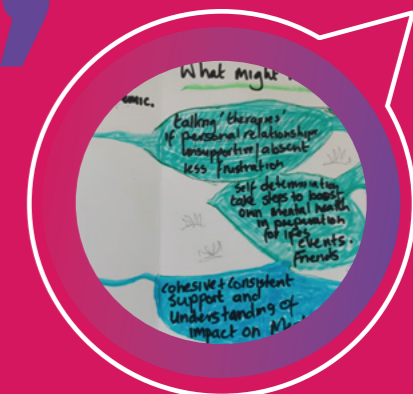 What might
emic.
talking 'therapies'
if personal relationships
unsupportive/absent
less frustration
self determination
take steps to boost
own mental health
in preparation
for lifes
events.
Friends
cohesive + consistent
support and
understanding of
impact on Me